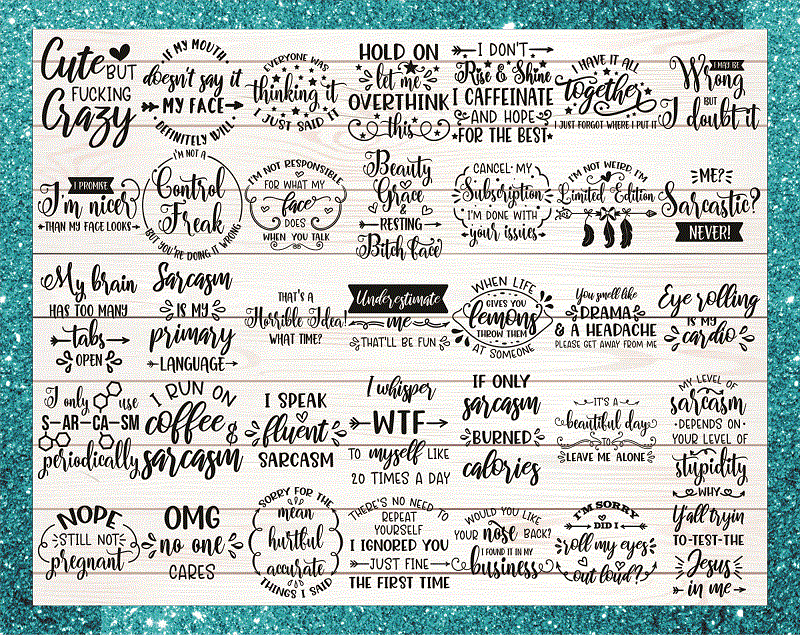 Cute BUT
FUCKING
Crazy
IF MY MOUTH
doesn't say it
MY FACE
DEFINITELY WILL
EVERYONE WAS
thinking it
I JUST SAID IT
HOLD ON
let me
OVERTHINK
this
I DON'T
Rise & Shine
I CAFFEINATE
AND HOPE
FOR THE BEST
I HAVE IT ALL
together
I JUST FORGOT WHERE I PUT IT
I MAY BE
Wrong
BUT
I doubt it
I PROMISE
I'm nicer
THAN MY FACE LOOKS
I'M NOT A
Control
Freak
BUT YOU'RE DOING IT WRONG
I'M NOT RESPONSIBLE
FOR WHAT MY
face
DOES
WHEN YOU TALK
Beauty
Grace
&
RESTING
Bitch face
CANCEL MY
Subscription
I'M DONE WITH
your issues
I'M NOT WEIRD, I'M
Limited Edition
ME?
Sarcastic?
NEVER!
My brain
HAS TOO MANY
tabs
OPEN
Sarcasm
IS MY
primary
LANGUAGE
THAT'S A
Horrible Idea!
WHAT TIME?
Underestimate
me
THAT'LL BE FUN
WHEN LIFE
GIVES YOU
lemons
THROW THEM
AT SOMEONE
You smell like
DRAMA
& A HEADACHE
PLEASE GET AWAY FROM ME
Eye rolling
IS MY
cardio
I only use
S-AR-CA-SM
periodically
I RUN ON
coffee &
sarcasm
I SPEAK
fluent
SARCASM
I whisper
WTF
TO myself LIKE
20 TIMES A DAY
IF ONLY
sarcasm
BURNED
calories
IT'S A
beautiful day
TO
LEAVE ME ALONE
MY LEVEL OF
sarcasm
DEPENDS ON
YOUR LEVEL OF
stupidity
NOPE
STILL NOT
pregnant
OMG
no one
CARES
SORRY FOR THE
mean
hurtful
accurate
THINGS I SAID
THERE'S NO NEED TO
REPEAT
YOURSELF
I IGNORED YOU
JUST FINE
THE FIRST TIME
WOULD YOU LIKE
YOUR nose BACK?
I FOUND IT IN MY
business
I'M SORRY
DID I
roll my eyes
out loud?
WHY
Y'all tryin
TO-TEST-THE
Jesus
in me